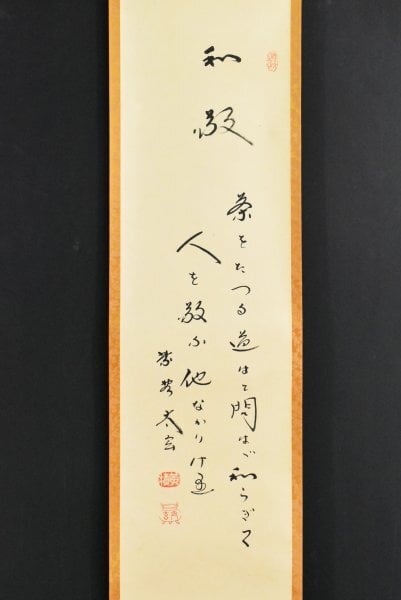 和敬
茶をたつる道はと問はゞ和らぎて
人を敬ふ他なかりけり
紫野 太玄